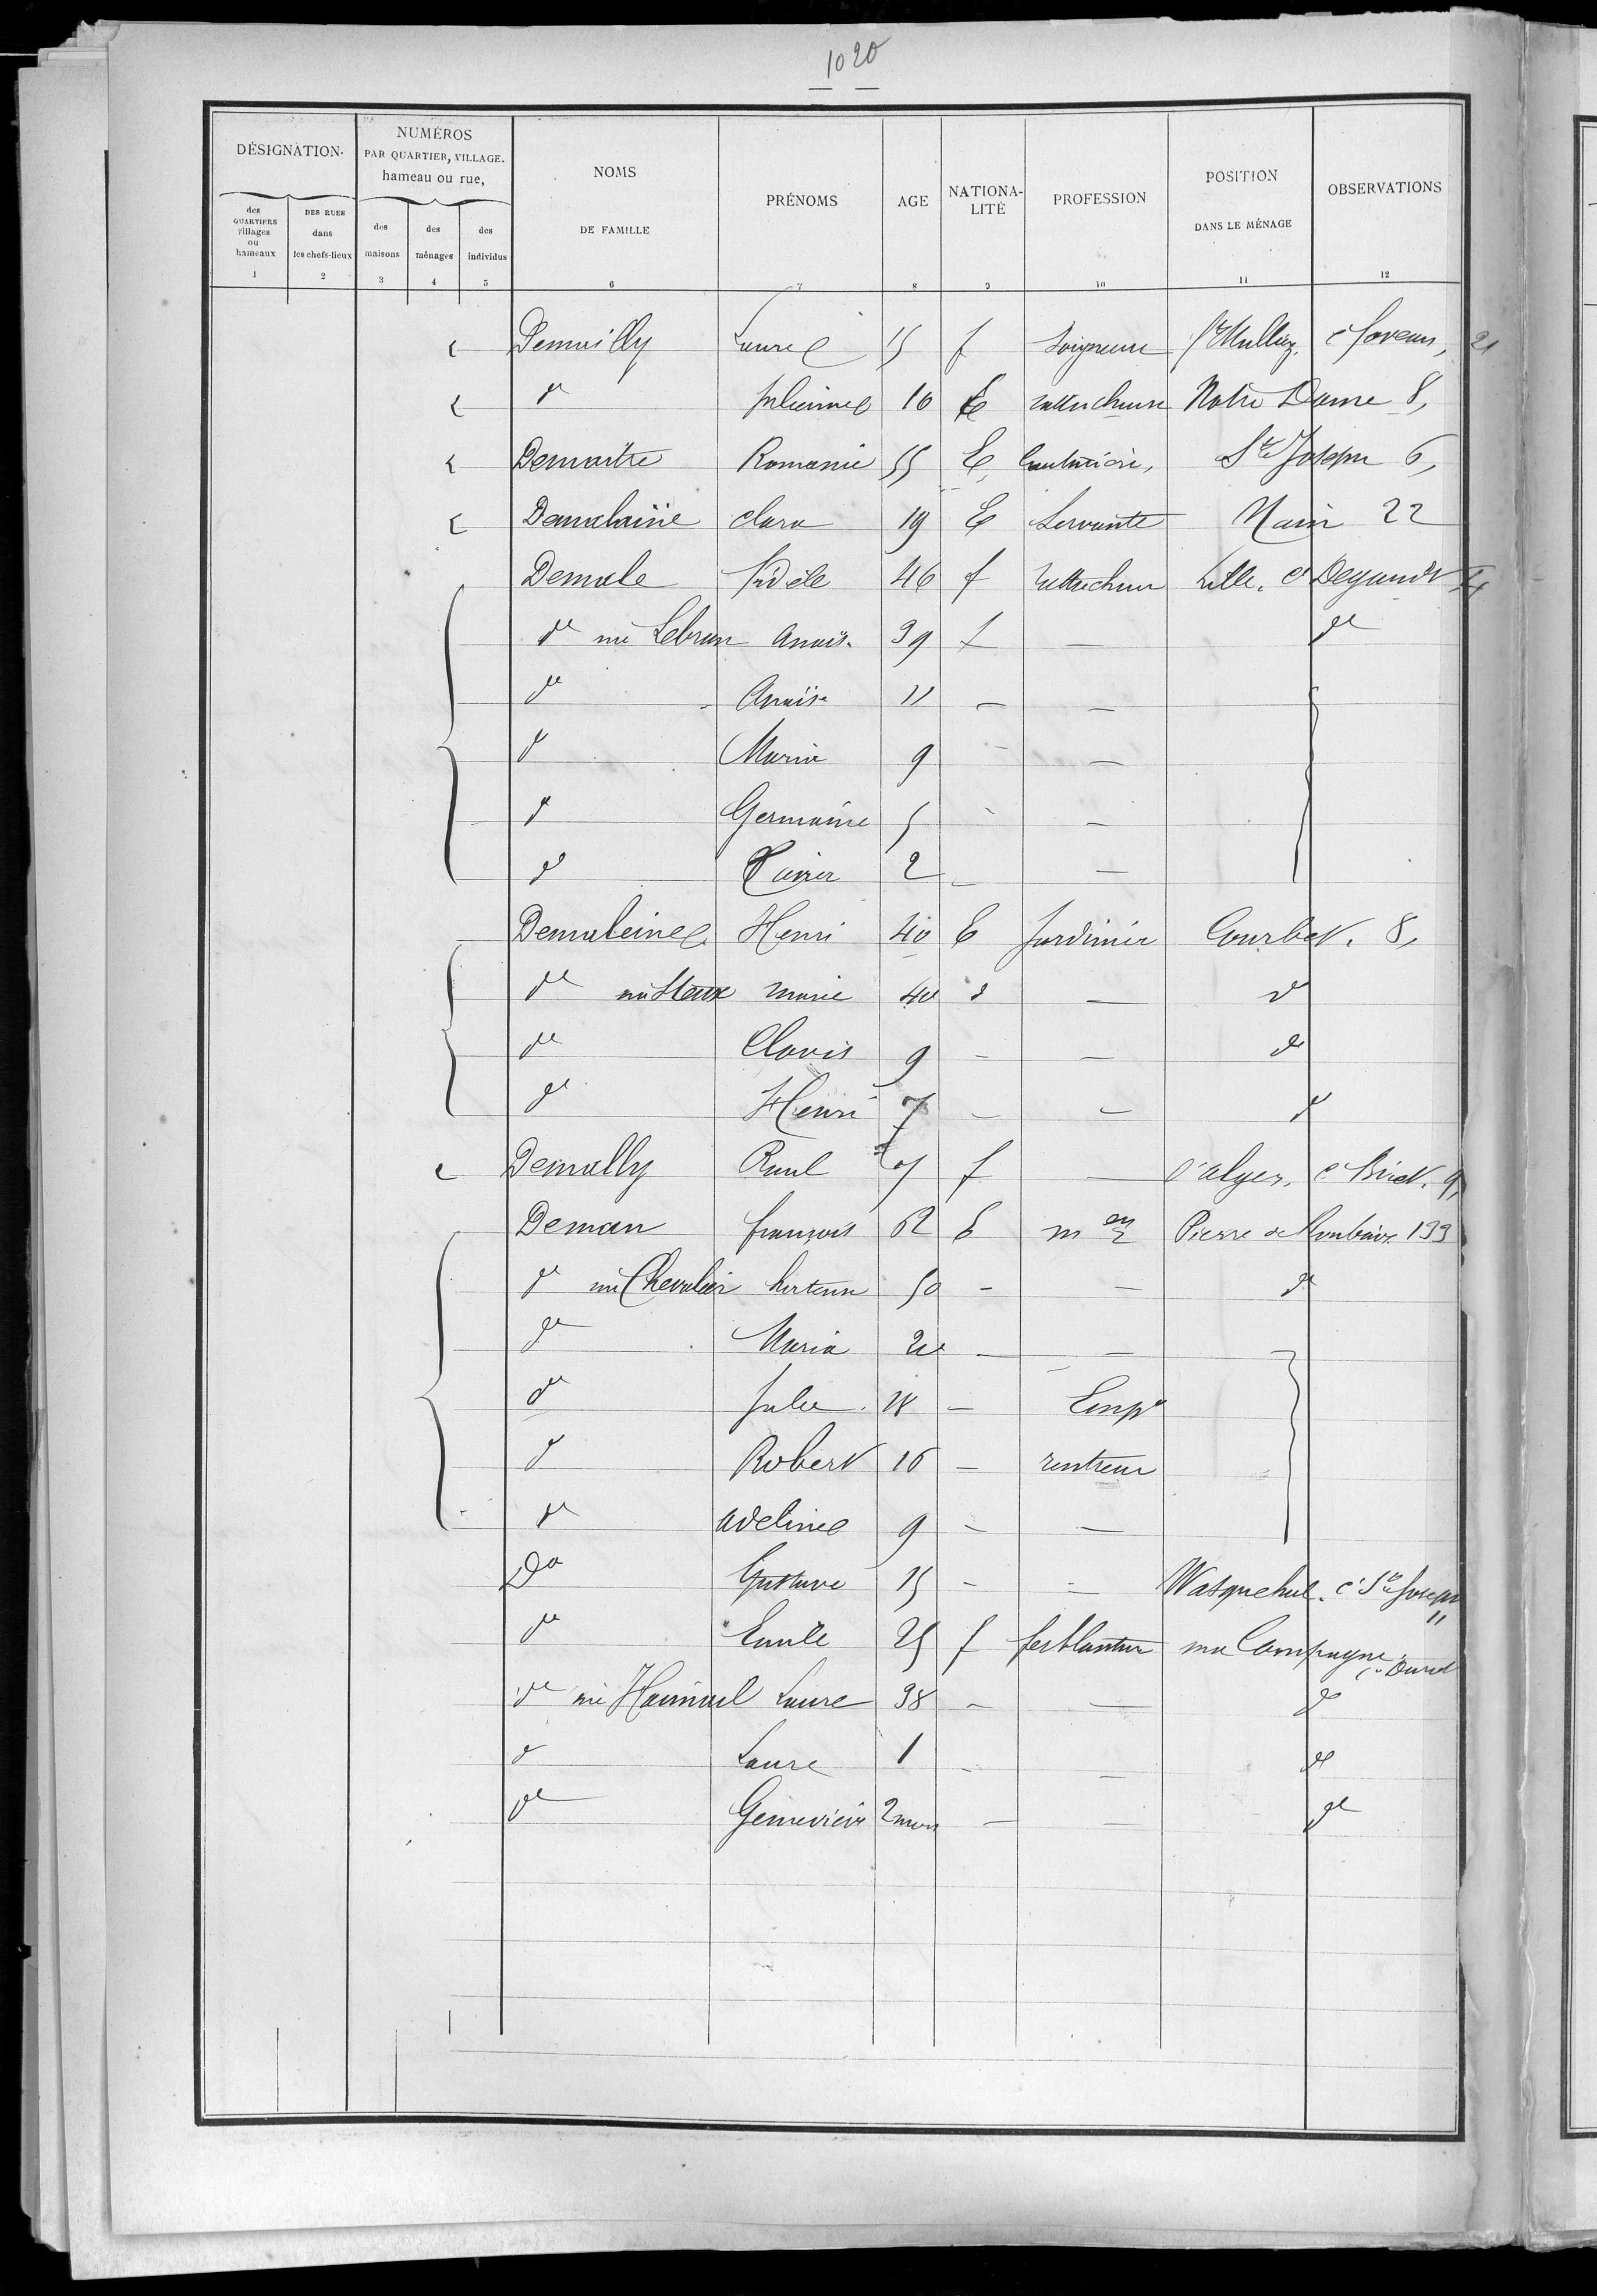 1020
DÉSIGNATION
NUMÉROS PAR QUARTIER, VILLAGE. hameau ou rue,
NOMS DE FAMILLE
PRÉNOMS
AGE
NATIONALITÉ
PROFESSION
POSITION DANS LE MÉNAGE
OBSERVATIONS
des QUARTIERS villages ou hameaux
DES RUES dans les chefs-lieux
des maisons
des ménages
des individus
1 2 3 4 5 6 7 8 9 10 11 12
Demailly Laure 15 f Soigneuse 21
d° Julienne 16 E rattacheuse Notre Dame 8,
Demaitre Romanie 55 E Couturière, St Joseph 6,
Demalaine Clara 19 E Servante Nain 22
Demale Fidèle 46 f rattacheur Lille. c. Degandt
d° née Lebrun Anaïs. 39 f — d°
d° Anaïse 11 — —
d° Maria 9 — —
d° Germaine 5 — —
d° 2 — —
Demaleine Henri 40 E Jardinier Courbet. 8,
d° née Marie 40 d — d°
d° Clovis 9 — — d°
d° Henri 7 — — d°
Demally Paul 7 f — d'alger, 9,
Deman françois 62 E Pierre de Roubaix 133
d° née Chevalier hortense 50 — — d°
d° Maria 20 — —
d° Julie. 18 — Emp
d° Robert 16 — rentreur
d° adeline 9 — —
D° Gustave 15 — — Wasquehal. c. St Joseph 11
d° Emile 25 f ferblantier ma Campagne.
d° née Laure 38 — — d°
d° Laure 1 — — d°
d° Geneviève 2 mois — — d°